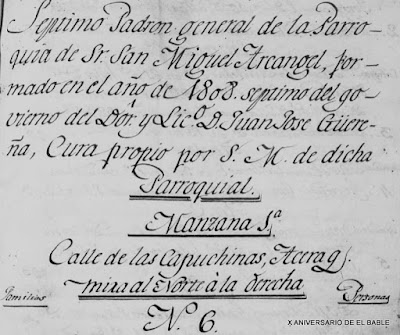 Septimo Padron general de la Parro-
quia de Sr. San Miguel Arcangel, for-
mado en el año de 1808. septimo del go-
vierno del Dor. y Lico. D. Juan Jose Güere-
ña, Cura propio por S. M. de dicha
Parroquial.
Manzana 1a
Calle de las Capuchinas, Acera q.
mira al Norte à la derecha
Familias
Personas
No. 6.
X ANIVERSARIO DE EL BABLE